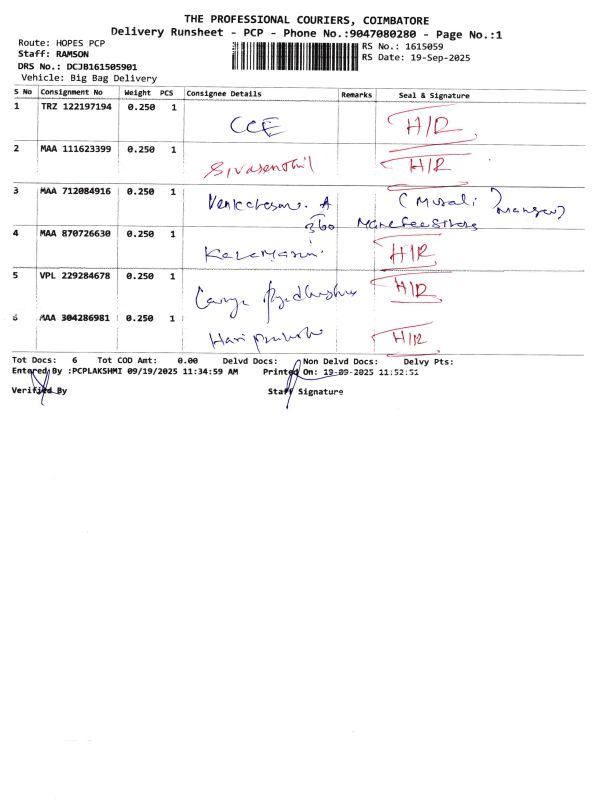 THE PROFESSIONAL COURIERS, COIMBATORE
Delivery Runsheet - PCP - Phone No.:9047080280 - Page No.:1
Route: HOPES PCP
RS No.: 1615059
Staff: RAMSON
RS Date: 19-Sep-2025
DRS No.: DCJB161505901
Vehicle: Big Bag Delivery
S No Consignment No Weight PCS Consignee Details Remarks Seal & Signature
1 TRZ 122197194 0.250 1 CCE H/R
2 MAA 111623399 0.250 1 Sivasenthil H/R
3 MAA 712084916 0.250 1 A (Murali Manager)
360
4 MAA 870726630 0.250 1 H/R
5 VPL 229284678 0.250 1 H/R
6 MAA 304286981 0.250 1 Hari H/R
Tot Docs: 6 Tot COD Amt: 0.00 Delvd Docs: Non Delvd Docs: Delvy Pts:
Entered By :PCPLAKSHMI 09/19/2025 11:34:59 AM Printed On: 19-09-2025 11:52:51
Verified By Staff Signature